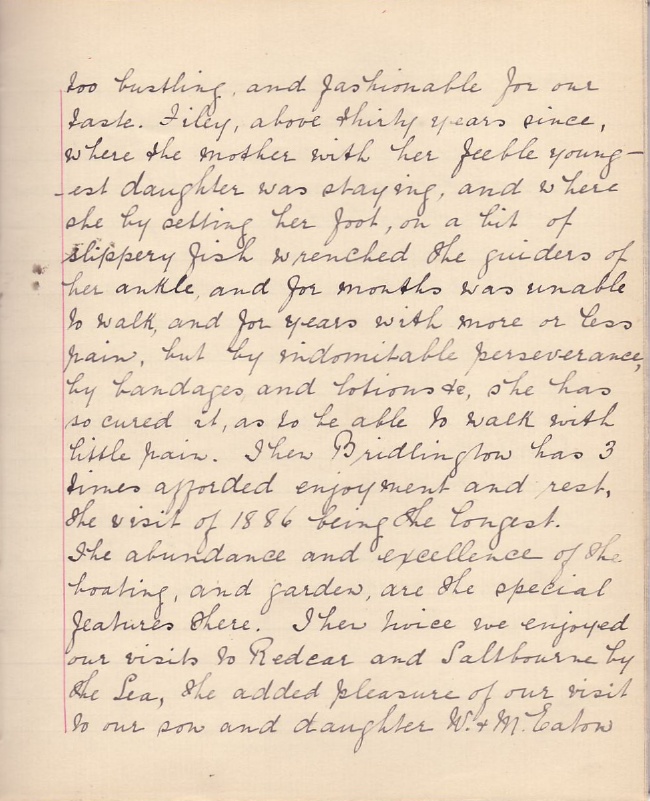 too bustling, and fashionable for our
taste. Filey, above thirty years since,
where the mother with her feeble young-
-est daughter was staying, and where
she by setting her foot, on a bit of
slippery fish wrenched the guiders of
her ankle, and for months was unable
to walk, and for years with more or less
pain, but by indomitable perseverance,
by bandages and lotions &c, she has
so cured it, as to be able to walk with
little pain. Then Bridlington has 3
times afforded enjoyment and rest,
the visit of 1886 being the longest.
The abundance and excellence of the
boating, and garden, are the special
features there. Then twice we enjoyed
our visits to Redcar and Saltbourne by
the Sea, the added pleasure of our visit
to our son and daughter W. & M. Eaton